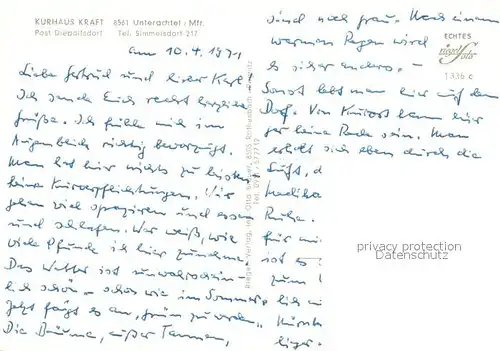 KURHAUS KRAFT 8561 Unterachtel i. Mfr.
Post Diepoltsdorf Tel. Simmelsdorf 217
am 10.4.1971
Liebe Gertrud und lieber Karl
Ich sende Euch recht herzliche
Grüße. Ich fühle mich im
Augenblick richtig bevorzugt.
Man hat hier nichts zu
keine Kurverpflichtungen. Wir
gehen viel spazieren und essen
und schlafen. Wer weiß, wie
viele Pfunde ich hier zunehme.
Das Wetter ist unwahrschein-
lich schön – schon wie im Sommer.
Jetzt fängt es an, grün zu werden.
Die Bäume, außer Tannen,
sind noch grau. Nach einem
warmen Regen wird
es sicher anders. –
Sonst lebt man hier auf dem
Dorf. Von Kurort kann hier
gar keine Rede sein. Man
erholt sich eben durch die
Luft, d
Ruhe.
für mi
ist es
zum
lich
Nürnb
liger.
ECHTES
riegel
Foto
1336 c
Riegel-Verlag, Inh. Otto
Tel. 0911/577712
privacy protection
Metadaten AG